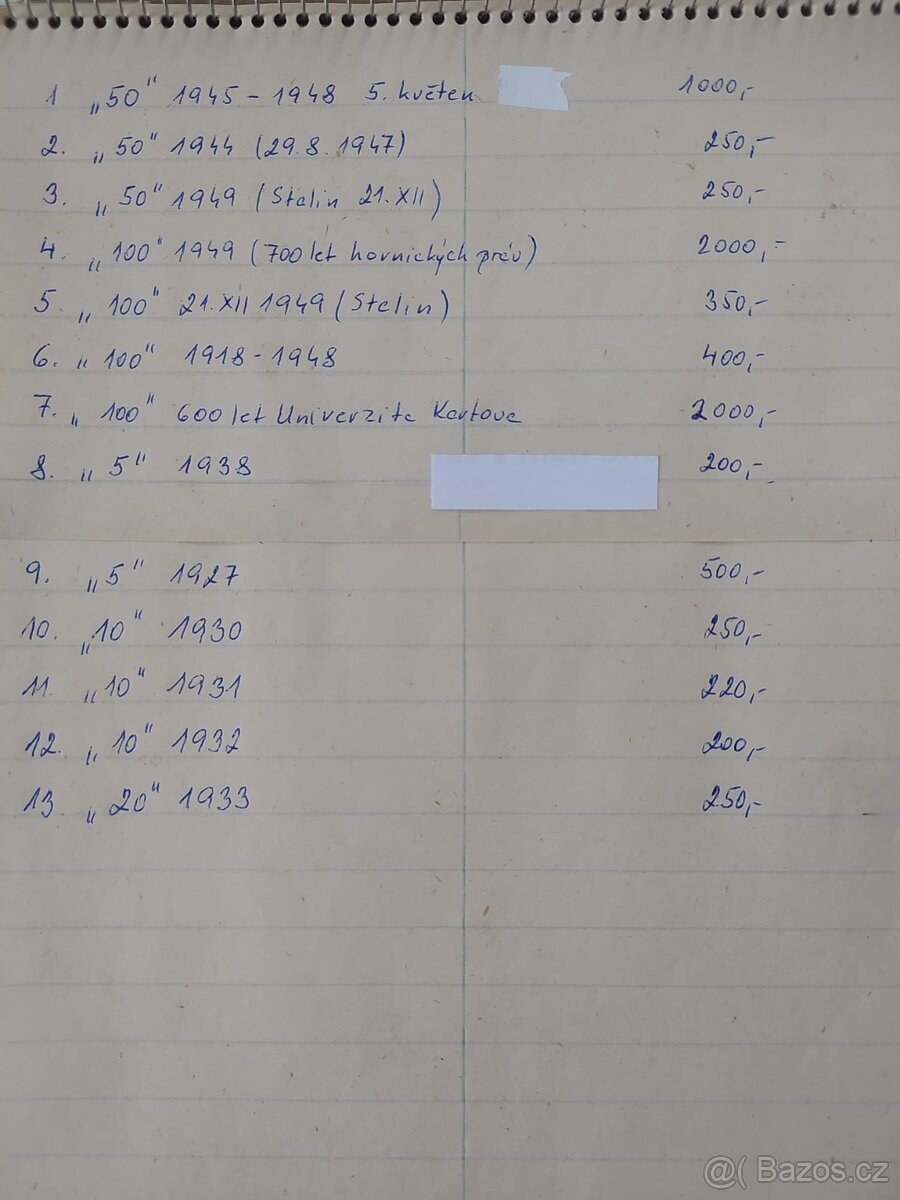 1 „50" 1945 - 1948 5. květen 1000,-
2. „50" 1944 (29.8.1947) 250,-
3. „50" 1949 (Stalin 21.XII) 250,-
4. „100" 1949 (700 let hornických práv) 2000,-
5. „100" 21.XII 1949 (Stalin) 350,-
6. „100" 1918 - 1948 400,-
7. „100" 600 let Univerzita Karlova 2000,-
8. „5" 1938 200,-
9. „5" 1927 500,-
10. „10" 1930 250,-
11. „10" 1931 220,-
12. „10" 1932 200,-
13. „20" 1933 250,-
@( Bazos.cz